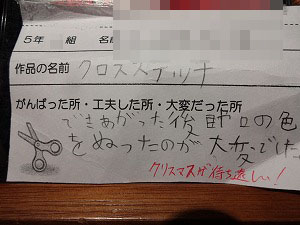 ５年 組 名前
作品の名前 クロスステッチ
がんばった所・工夫した所・大変だった所
できあがった後の色
をぬったのが大変でした
クリスマスが待ち遠しい！